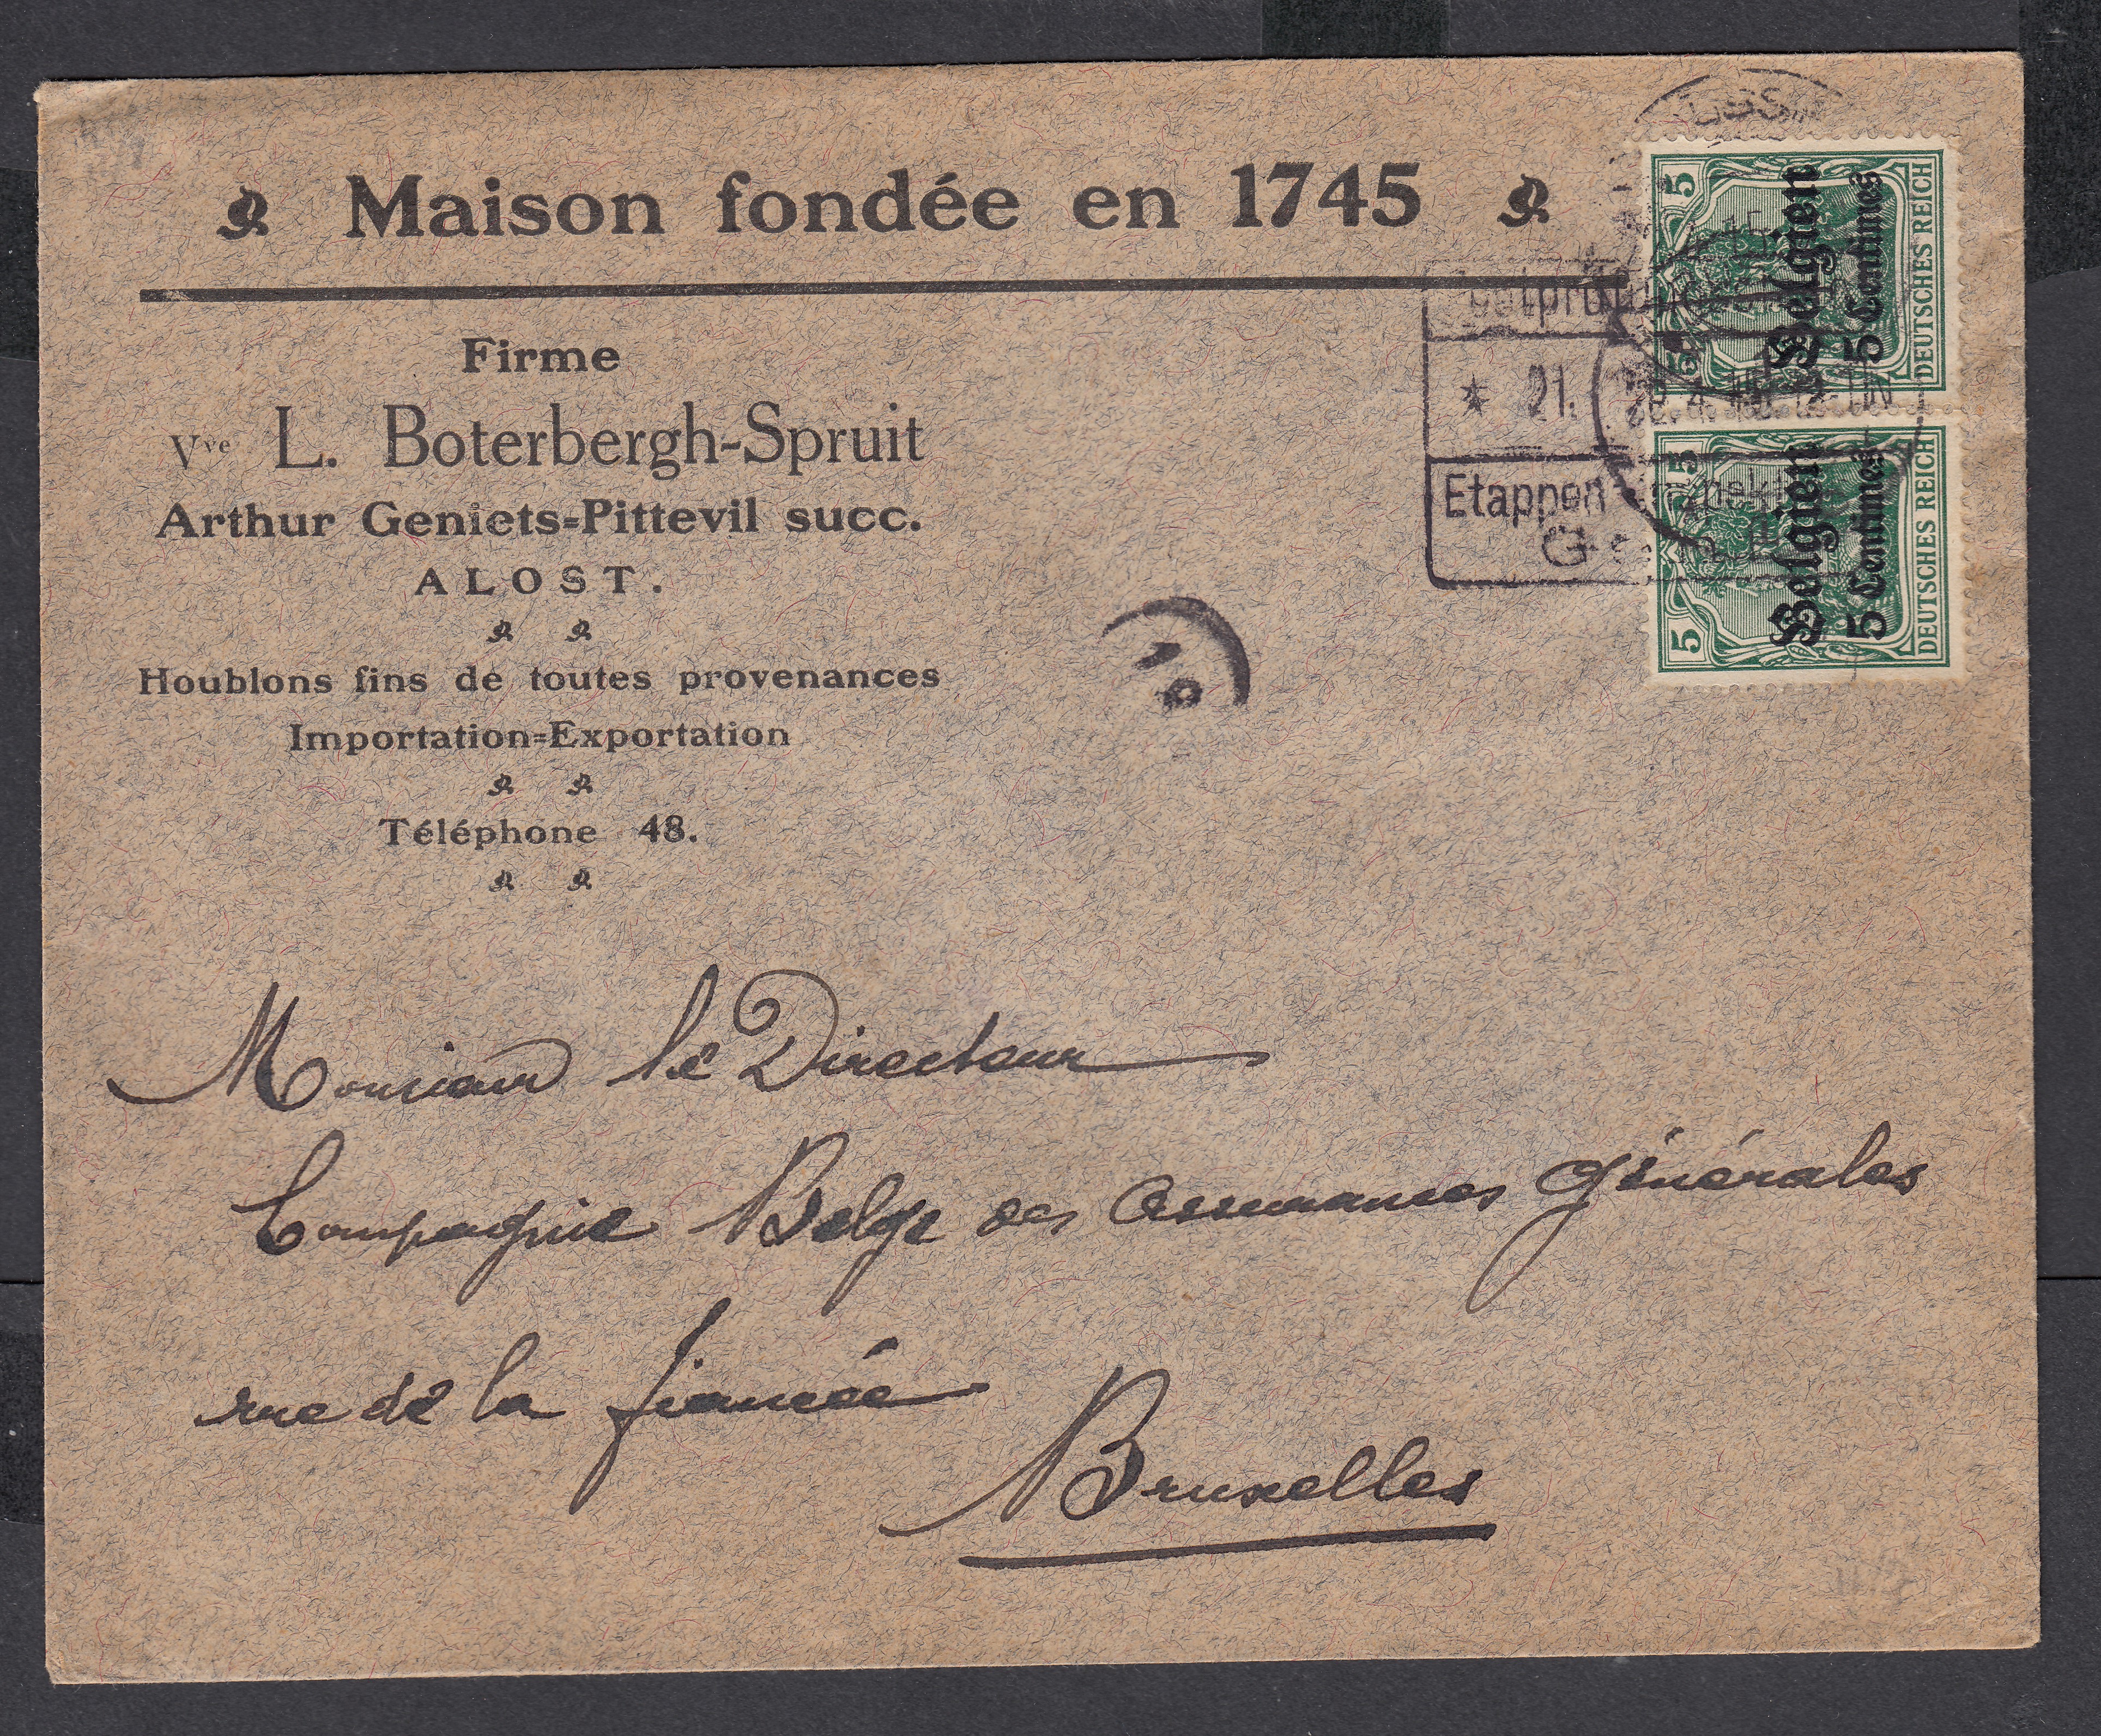 Maison fondée en 1745
Firme
Vve L. Boterbergh-Spruit
Arthur Geniets-Pittevil succ.
ALOST.
Houblons fins de toutes provenances
Importation-Exportation
Téléphone 48.
5 Belgien 5 Centimes DEUTSCHES REICH
5 Belgien 5 Centimes DEUTSCHES REICH
* 21.
Etappen
Monsieur le Directeur
Compagnie Belge des Assurances Générales
rue de la fiancée
Bruxelles